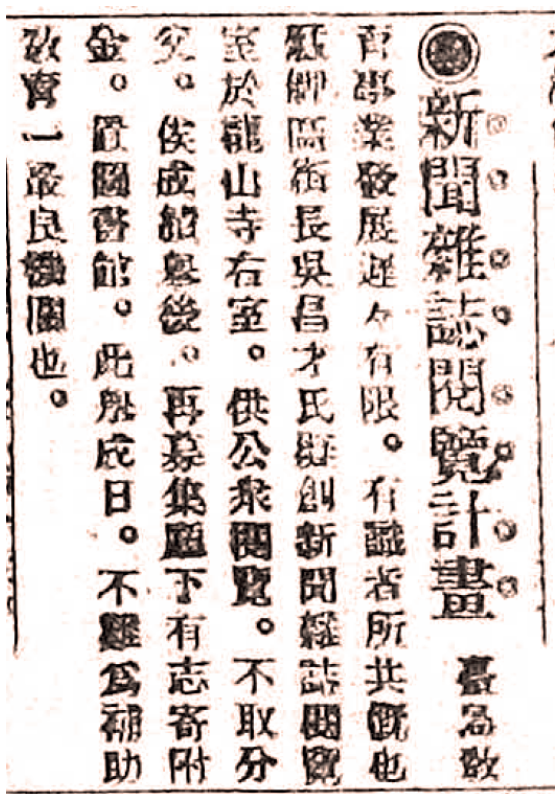 ◉新聞雜誌閱覽計畫 臺島敎
育事業發展遲々有限。有識者所共慨也
艋舺區街長吳昌才氏擬創新聞雜誌閱覽
室於龍山寺右室。供公衆閱覽。不取分
文。俟成績舉後。再募集廳下有志寄附
金。置圖書館。此舉成日。不難爲補助
敎育一最良機關也。